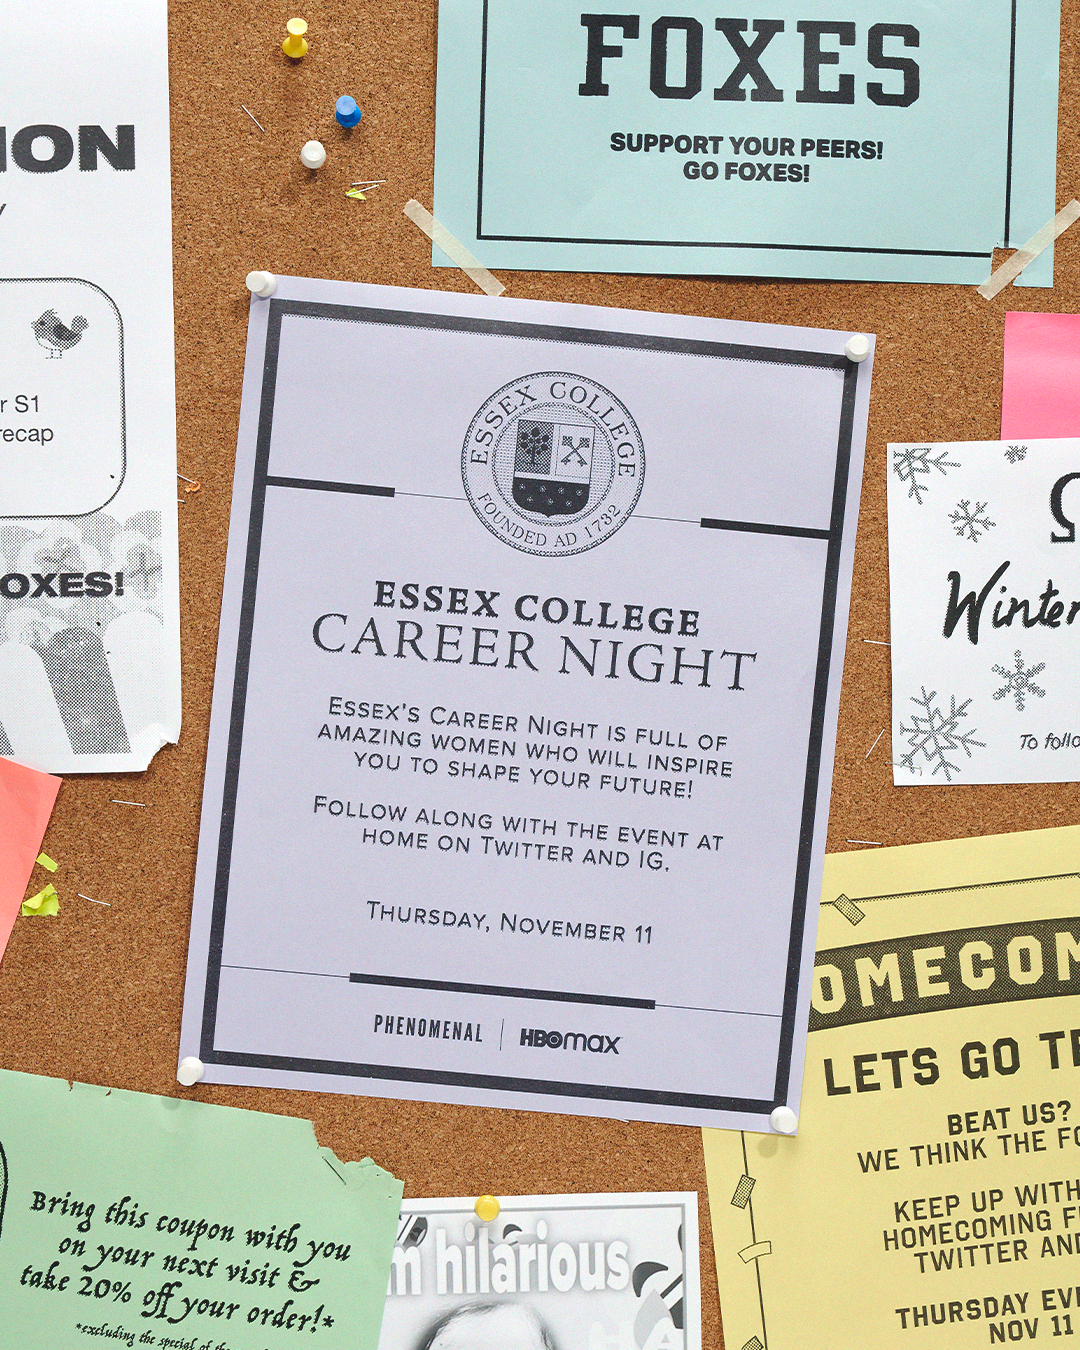 FOXES
SUPPORT YOUR PEERS!
GO FOXES!
ION
r S1
recap
OXES!
ESSEX COLLEGE
FOUNDED AD 1732
ESSEX COLLEGE
CAREER NIGHT
ESSEX'S CAREER NIGHT IS FULL OF
AMAZING WOMEN WHO WILL INSPIRE
YOU TO SHAPE YOUR FUTURE!
FOLLOW ALONG WITH THE EVENT AT
HOME ON TWITTER AND IG.
THURSDAY, NOVEMBER 11
PHENOMENAL | HBOmax
Ω
Winter
To follo
OMECOM
LETS GO TE
BEAT US?
WE THINK THE FO
KEEP UP WITH
HOMECOMING F
TWITTER AND
THURSDAY EVE
NOV 11
Bring this coupon with you
on your next visit &
take 20% off your order!*
*excluding the special of the
m hilarious